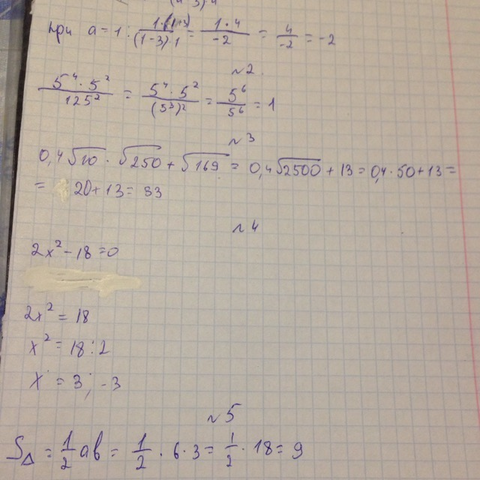 при a=1: 1·(1+3)/(1-3)·1 = 1·4/-2 = 4/-2 = -2
№2
5⁴·5²/125² = 5⁴·5²/(5³)² = 5⁶/5⁶ = 1
№3
0,4√10 · √250 + √169 = 0,4√2500 + 13 = 0,4·50+13=
= 20+13 = 33
№4
2x²-18=0
2x² = 18
x² = 18:2
x = 3; -3
№5
S△ = 1/2 ab = 1/2 · 6·3 = 1/2 · 18 = 9